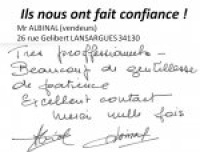 Ils nous ont fait confiance !
Mr ALBINAL (vendeurs)
26 rue Gelibert LANSARGUES 34130
Très proffessionnels -
Beaucoup de gentillesse
de patience
Excellent contact
Merci mille fois